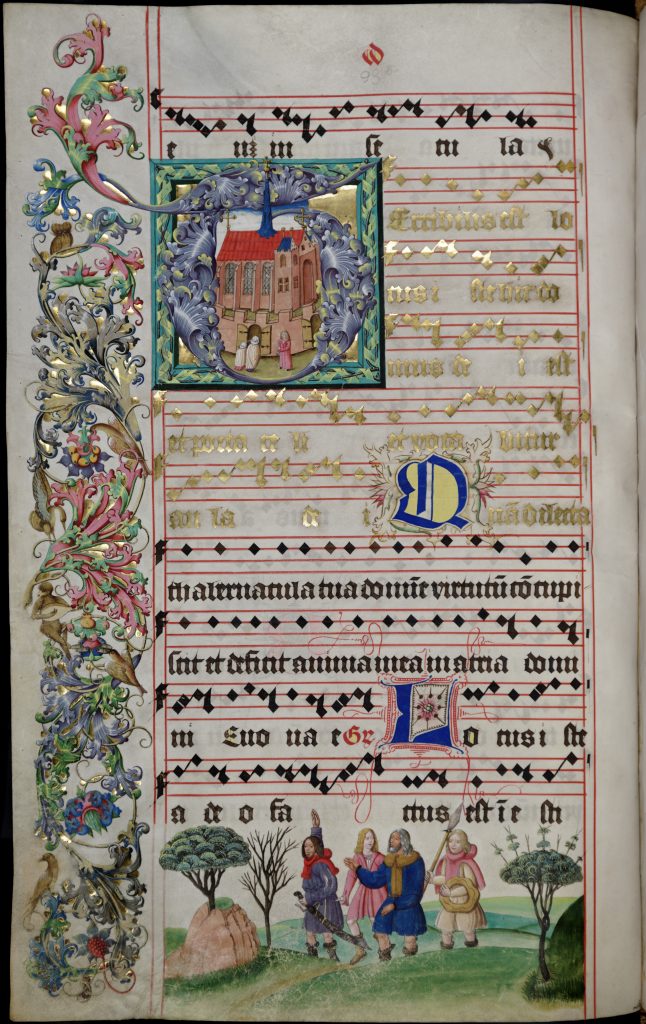 98
e uȝ in se cu la
Terribilis est lo
cus i ste hic do
mus de i est
et porta ce li et voca bitur
au la de i Quā dilecta
thabernacula tua domīe virtutū cōcupi
scit et deficit anima mea in atria domi
ni Euo ua e Gr Lo cus i ste
a de o fa ctus est īe sti